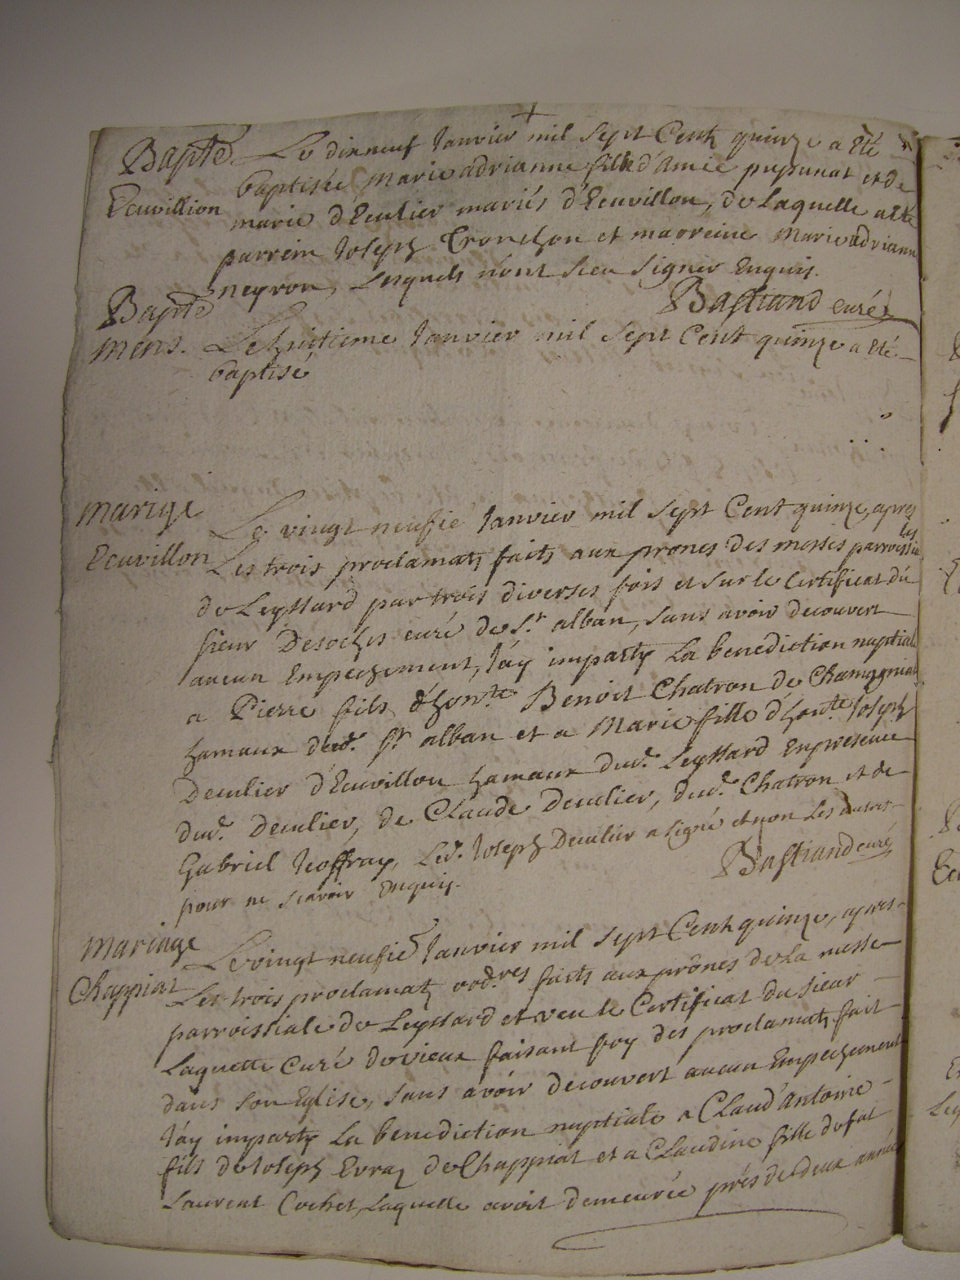 Bapte Le dixneuf Janvier mil sept Cent quinze a été
baptisée Marie adrianne fille d'Amié pupunat et de
Ecuvillion marie d'Eculier mariés d'Ecuvillon, de Laquelle a été
parrein Joseph Tronchon et marreine Marie adrianne
neyron, Lesquels n'ont sceu signer Enquis.
Bastiand curé
Bapte
mens. Le huitieme Janvier mil sept Cent quinze a été
baptisé
marige Le vingt neufie Janvier mil sept Cent quinze, apres
Ecuvillon Les trois proclamats faits aux prones des messes parroissiales
de Leyssard par trois diverses fois et sur le Certificat du
sieur Desoches curé de St alban, sans avoir decouvert
aucun Empechement, J'ay imparty La benediction nuptiale
a Pierre fils d'honte Benoit Chatron de
hamaux dud. St alban et a Marie fille d'honte Joseph
Deculier d'Ecuvillon hamaux dud. Leyssard En presence
dud. Deculier, de Claude Deculier, dud. Chatron et de
Gabriel Jeoffray, Led. Joseph Deculier a signé et non Les autres
pour ne scavoir Enquis.
Bastiand curé
Mariage Le vingt neufie Janvier mil sept Cent quinze, apres
Chappiat Les trois proclamats faits aux prônes de La messe
parroissiale de Leyssard et veu le Certificat du sieur
Laquette Curé de vieux faisant foy des proclamats fait
dans son Eglise, sans avoir decouvert aucun Empechement
J'ay imparty La benediction nuptiale a Claud'Antoine
fils de Joseph Evraz de Chappiat et a Claudine fille de fut
Laurent Cochet, Laquelle avoit demeurée prés de deux années